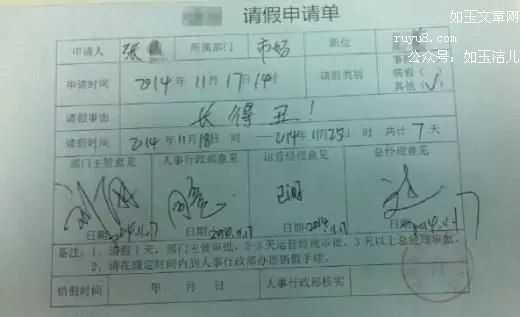 如玉文章网
ruyu8.com
公众号：如玉洁儿
请假申请单
申请人 张 所属部门 市场 职位
申请时间 2014年11月17日14时 请假类别 事假( 病假( 其他(√)
请假事由 长得丑！
请假时间 2014年11月18日 时 — 2014年11月25日 时 共计7天
部门主管意见 人事行政部意见 运营经理意见 总经理意见
日期 2014.11.17 日期 2014.11.17 日期 2014.11.17 日期 2014.11.17
备注：1、请假1天，部门主管审批，2-3天运营经理审批，3天以上总经理审批。
2、请在规定时间内到人事行政部办理销假手续。
销假时间 年 月 日 人事行政部核实